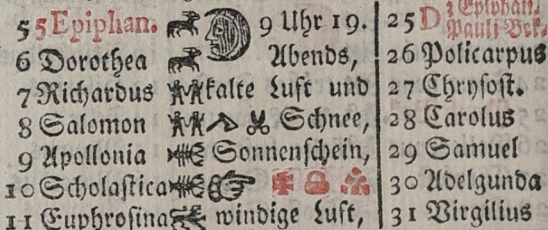 5 5 Epiphan. 9 Uhr 19. 25 D 3 Epiphan.
Pauli Bek.
6 Dorothea Abends, 26 Policarpus
7 Richardus kalte Luft und 27 Chrysost.
8 Salomon Schnee, 28 Carolus
9 Apollonia Sonnenschein, 29 Samuel
10 Scholastica 30 Adelgunda
11 Euphrosina windige Luft, 31 Virgilius